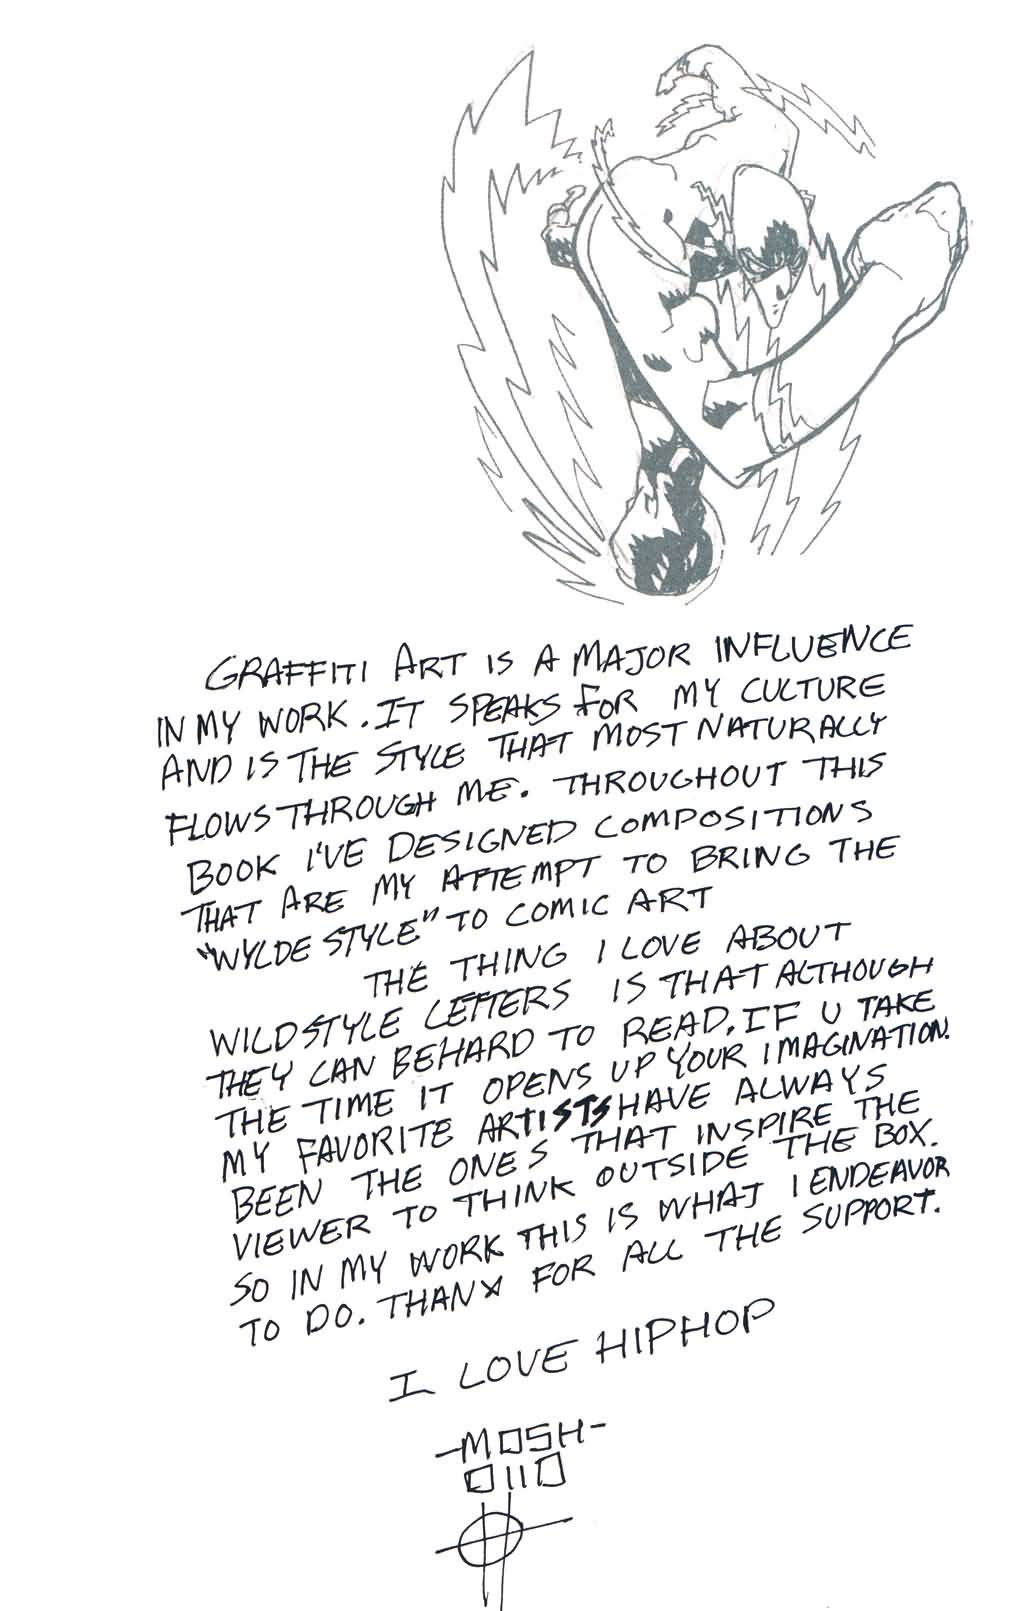 GRAFFITI ART IS A MAJOR INFLUENCE
IN MY WORK. IT SPEAKS FOR MY CULTURE
AND IS THE STYLE THAT MOST NATURALLY
FLOWS THROUGH ME. THROUGHOUT THIS
BOOK I'VE DESIGNED COMPOSITIONS
THAT ARE MY ATTEMPT TO BRING THE
"WYLDE STYLE" TO COMIC ART
THE THING I LOVE ABOUT
WILDSTYLE LETTERS IS THAT ALTHOUGH
THEY CAN BE HARD TO READ. IF U TAKE
THE TIME IT OPENS UP YOUR IMAGINATION.
MY FAVORITE ARTISTS HAVE ALWAYS
BEEN THE ONES THAT INSPIRE THE
VIEWER TO THINK OUTSIDE THE BOX.
SO IN MY WORK THIS IS WHAT I ENDEAVOR
TO DO. THANX FOR ALL THE SUPPORT.
I LOVE HIPHOP
-MOSH-
0110